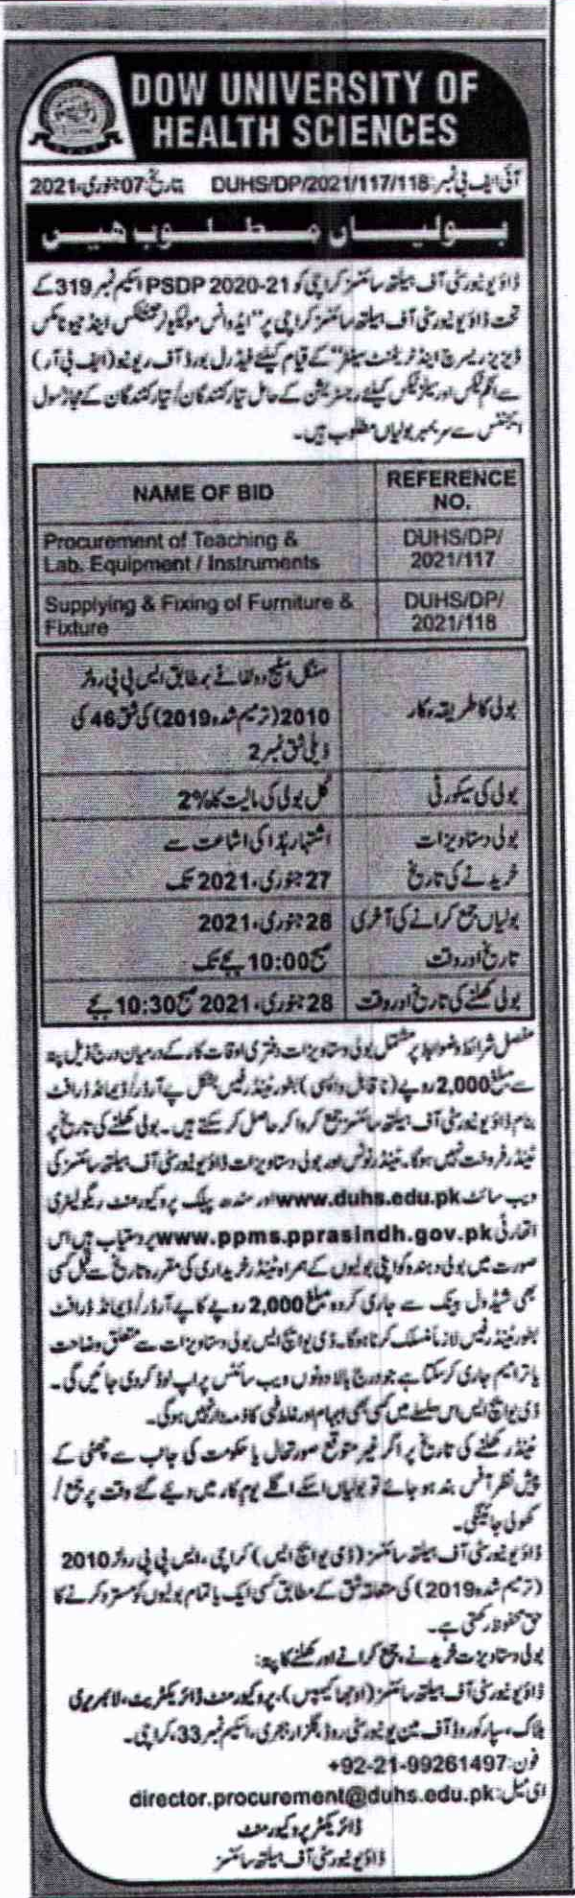 DOW UNIVERSITY OF
HEALTH SCIENCES
آئی ایف بی نمبر: DUHS/DP/2021/117/118 بتاریخ: 07 جنوری، 2021
بولیاں مطلوب ہیں
ڈاؤ یونیورسٹی آف ہیلتھ سائنسز کراچی کو PSDP 2020-21 اسکیم نمبر 319 کے
تحت ڈاؤ یونیورسٹی آف ہیلتھ سائنسز کراچی پر "ایڈوانس مولیکیولر جینٹکس اینڈ جینومکس
ڈیزیز ریسرچ اینڈ ٹریٹمنٹ سینٹر" کے قیام کیلئے فیڈرل بورڈ آف ریونیو (ایف بی آر)
سے انکم ٹیکس اور سیلز ٹیکس کیلئے رجسٹریشن کے حامل تیار کنندگان/ تیار کنندگان کے مجاز سول
ایجنٹس سے سربمہر بولیاں مطلوب ہیں۔
NAME OF BID
REFERENCE
NO.
Procurement of Teaching &
Lab. Equipment / Instruments
DUHS/DP/
2021/117
Supplying & Fixing of Furniture &
Fixture
DUHS/DP/
2021/118
بولی کا طریقہ کار
سنگل اسٹیج دو لفافے بمطابق ایس پی پی رولز
2010 (ترمیم شدہ 2019) کی شق 46 کی
ذیلی شق نمبر 2
بولی کی سیکورٹی
کل بولی کی مالیت کا 2%
بولی دستاویزات
خریدنے کی تاریخ
اشتہار ہذا کی اشاعت سے
27 جنوری، 2021 تک
بولیاں جمع کرانے کی آخری
تاریخ اور وقت
28 جنوری، 2021
صبح 10:00 بجے تک
بولی کھلنے کی تاریخ اور وقت
28 جنوری، 2021 صبح 10:30 بجے
مفصل شرائط و ضوابط پر مشتمل بولی دستاویزات دفتری اوقات کار کے درمیان درج ذیل پتہ
سے مبلغ 2,000 روپے (ناقابل واپسی) بطور ٹینڈر فیس بشکل پے آرڈر/ ڈیمانڈ ڈرافٹ
بنام ڈاؤ یونیورسٹی آف ہیلتھ سائنسز جمع کروا کر حاصل کر سکتے ہیں۔ بولی کھلنے کی تاریخ پر
ٹینڈر فروخت نہیں ہوگا۔ ٹینڈر نوٹس اور بولی دستاویزات ڈاؤ یونیورسٹی آف ہیلتھ سائنسز کی
ویب سائٹ www.duhs.edu.pk اور سندھ پبلک پروکیورمنٹ ریگولیٹری
اتھارٹی www.ppms.pprasindh.gov.pk پر دستیاب ہیں اس
صورت میں بولی دہندہ کو اپنی بولیوں کے ہمراہ ٹینڈر خریداری کی مقررہ تاریخ سے قبل کسی
بھی شیڈول بینک سے جاری کردہ مبلغ 2,000 روپے کا پے آرڈر/ ڈیمانڈ ڈرافٹ
بطور ٹینڈر فیس لازماً منسلک کرنا ہوگا۔ ڈی یو ایچ ایس بولی دستاویزات سے متعلق وضاحت
یا ترامیم جاری کر سکتا ہے جو درج بالا دونوں ویب سائٹس پر اپ لوڈ کردی جائیں گی۔
ڈی یو ایچ ایس اس سلسلے میں کسی بھی ابہام اور غلط فہمی کا ذمہ دار نہیں ہوگی۔
ٹینڈر کھلنے کی تاریخ پر اگر غیر متوقع صورتحال یا حکومت کی جانب سے چھٹی کے
پیش نظر آفس بند ہو جائے تو بولیاں اسکے اگلے یوم کار میں دیئے گئے وقت پر جمع/
کھولی جائینگی۔
ڈاؤ یونیورسٹی آف ہیلتھ سائنسز (ڈی یو ایچ ایس) کراچی، ایس پی پی رولز 2010
(ترمیم شدہ 2019) کی متعلقہ شق کے مطابق کسی ایک یا تمام بولیوں کو مسترد کرنے کا
حق محفوظ رکھتی ہے۔
بولی دستاویزات خریدنے، جمع کرانے اور کھلنے کا پتہ:
ڈاؤ یونیورسٹی آف ہیلتھ سائنسز (اوجھا کیمپس)، پروکیورمنٹ ڈائریکٹریٹ، لائبریری
بلاک، سپارکو روڈ آف مین یونیورسٹی روڈ، گلزار ہجری، اسکیم نمبر 33، کراچی۔
فون: +92-21-99261497
ای میل: director.procurement@duhs.edu.pk
ڈائریکٹر پروکیورمنٹ
ڈاؤ یونیورسٹی آف ہیلتھ سائنسز